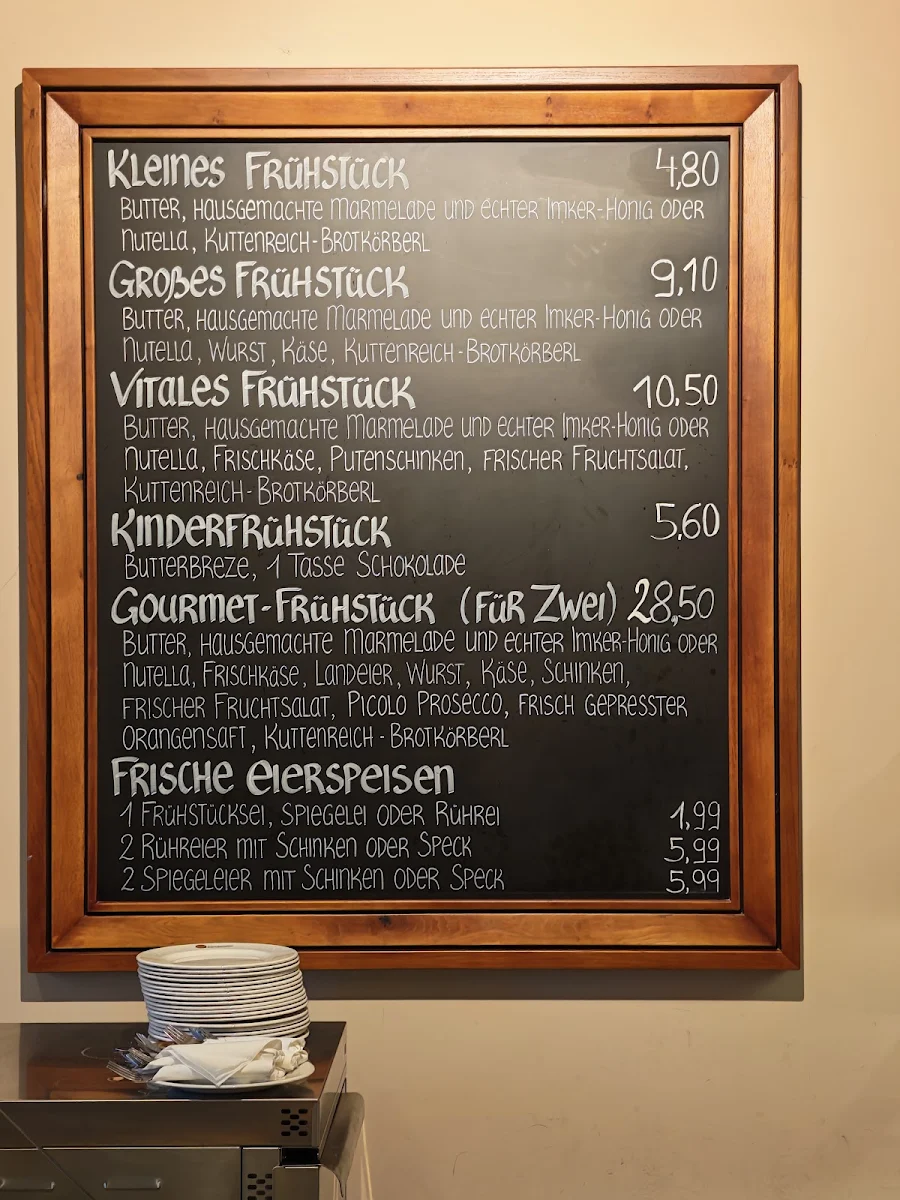 Kleines Frühstück 4,80
Butter, hausgemachte Marmelade und echter Imker-Honig oder
Nutella, Kuttenreich-Brotkörberl
Großes Frühstück 9,10
Butter, hausgemachte Marmelade und echter Imker-Honig oder
Nutella, Wurst, Käse, Kuttenreich-Brotkörberl
Vitales Frühstück 10,50
Butter, hausgemachte Marmelade und echter Imker-Honig oder
Nutella, Frischkäse, Putenschinken, frischer Fruchtsalat,
Kuttenreich-Brotkörberl
Kinderfrühstück 5,60
Butterbreze, 1 Tasse Schokolade
Gourmet-Frühstück (für Zwei) 28,50
Butter, hausgemachte Marmelade und echter Imker-Honig oder
Nutella, Frischkäse, Landeier, Wurst, Käse, Schinken,
frischer Fruchtsalat, Picolo Prosecco, frisch gepresster
Orangensaft, Kuttenreich-Brotkörberl
Frische Eierspeisen
1 Frühstücksei, Spiegelei oder Rührei 1,99
2 Rühreier mit Schinken oder Speck 5,99
2 Spiegeleier mit Schinken oder Speck 5,99